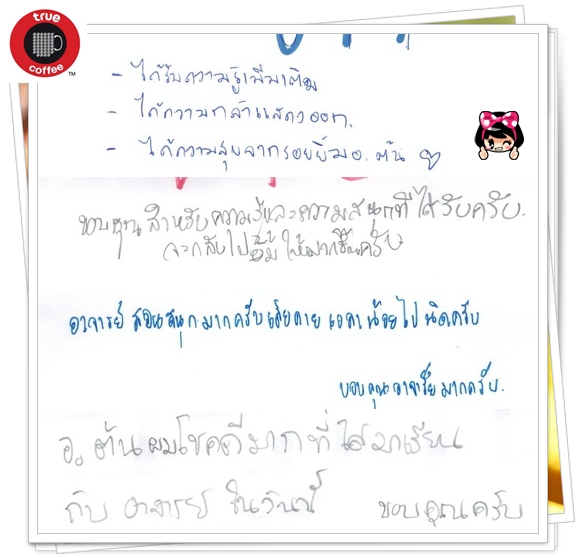 true
coffee
TM
- ได้รับความรู้เพิ่มเติม
- ได้ความกล้าแสดงออก.
- ได้ความสุขจากรอยยิ้มอ.ต้น
ขอบคุณสำหรับความรู้และความสนุกที่ได้รับครับ.
จะกลับไปยิ้มให้มากขึ้นครับ
อาจารย์ สอนสนุกมากครับเสียดาย เวลาน้อยไปนิดครับ
ขอบคุณอาจารย์มากครับ.
อ. ต้น ผมโชคดีมากที่ได้มาเรียน
กับ อาจารย์ ในวันนี้ ขอบคุณครับ